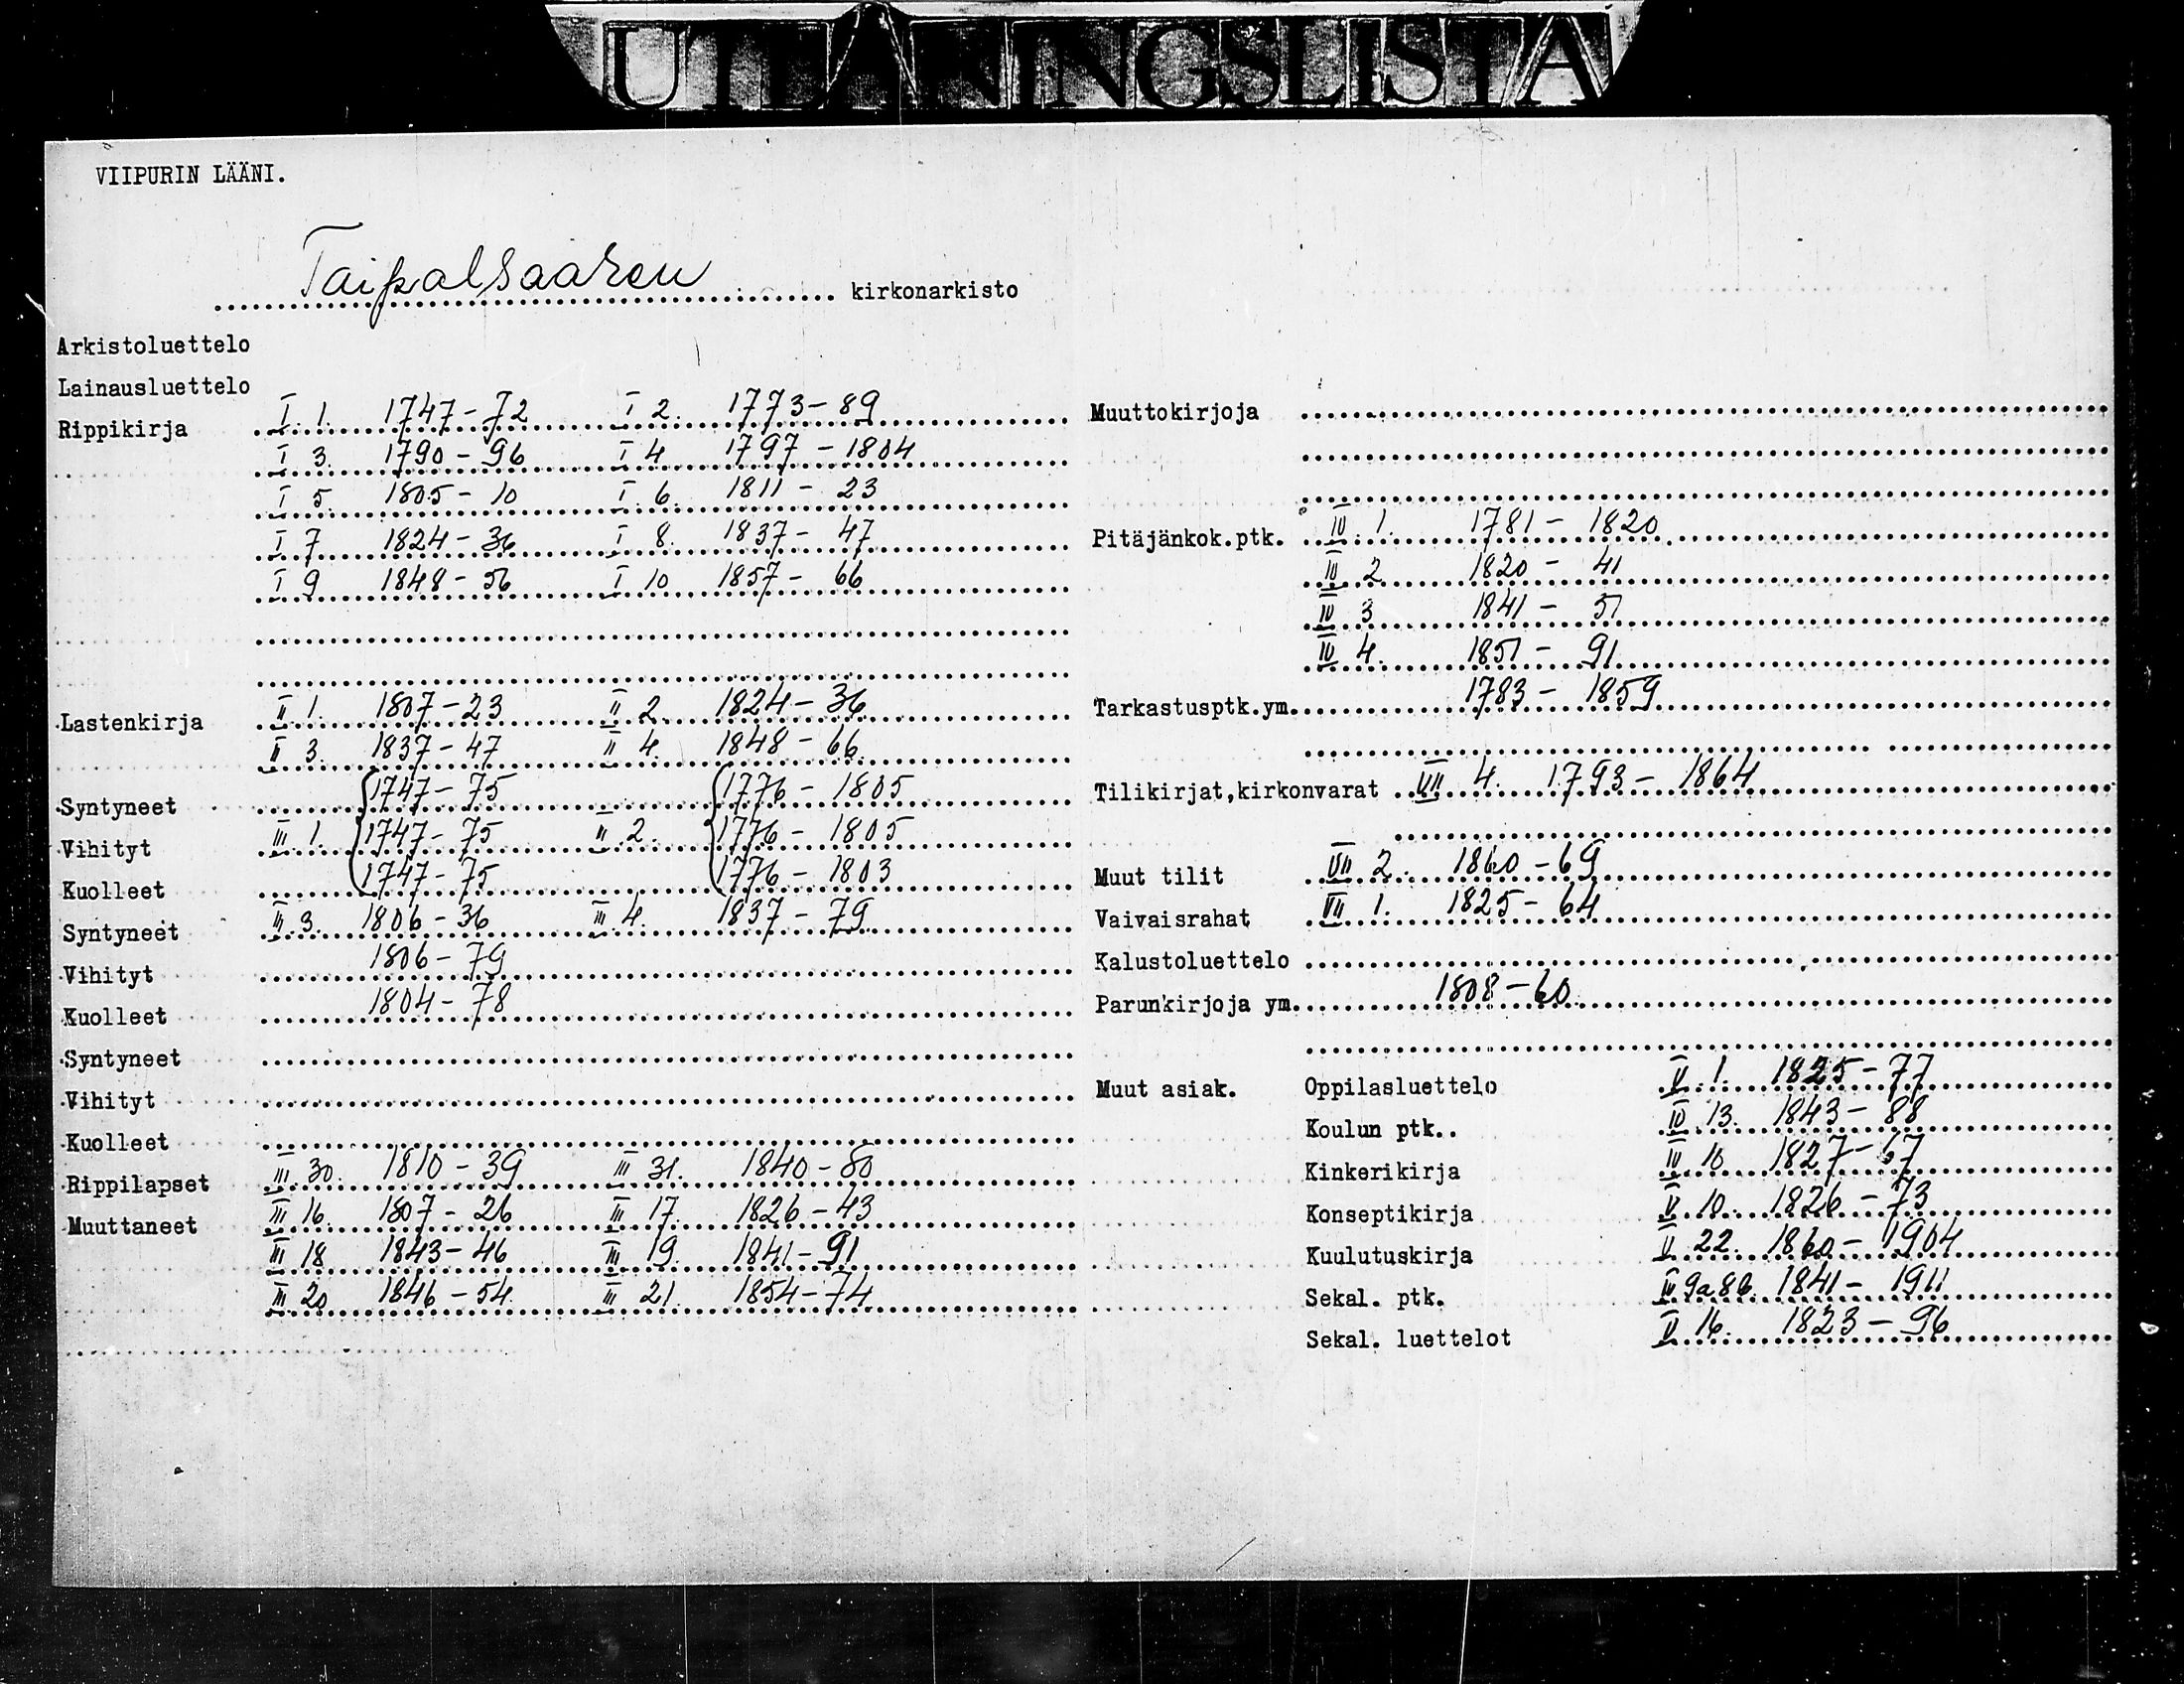 UTLÅNINGSLISTA
VIIPURIN LÄÄNI.
Taipalsaaren kirkonarkisto
Arkistoluettelo
Lainausluettelo
Rippikirja I. 1. 1747-72 I 2. 1773-89
I 3. 1790-96 I 4 1797-1804
I 5. 1805-10 I. 6. 1811-23
I 7 1824-36 I 8. 1837-47
I 9 1848-56 I 10 1857-66
Lastenkirja II. 1. 1807-23 II 2 1824-36
II 3. 1837-47 II 4. 1848-66
Syntyneet 1747-75 1776-1805
Vihityt III. 1. 1747-75 II. 2. 1776-1805
Kuolleet 1747-75 1776-1803
Syntyneet II. 3. 1806-36 III. 4. 1837-79
Vihityt 1806-79
Kuolleet 1804-78
Syntyneet
Vihityt
Kuolleet
Rippilapset III. 30. 1810-39 III 31. 1840-80
Muuttaneet III 16. 1807-26 III 17. 1826-43
III 18 1843-46 III 19. 1841-91
III 20 1846-54 III 21. 1854-74
Muuttokirjoja
Pitäjänkok.ptk. IV. 1. 1781-1820
IV 2 1820-41
IV 3 1841-51
IV 4. 1851-91
Tarkastusptk.ym. 1783-1859
Tilikirjat,kirkonvarat VII 4. 1793-1864
Muut tilit VII 2. 1860-69
Vaivaisrahat VII 1. 1825-64
Kalustoluettelo
Parunkirjoja ym. 1808-60
Muut asiak. Oppilasluettelo V. 1. 1825-77
Koulun ptk.. IV 13. 1843-88
Kinkerikirja IV 10 1827-67
Konseptikirja V. 10. 1826-73
Kuulutuskirja II 22. 1860-1904
Sekal. ptk. 1841-1911
Sekal. luettelot V. 16. 1823-96